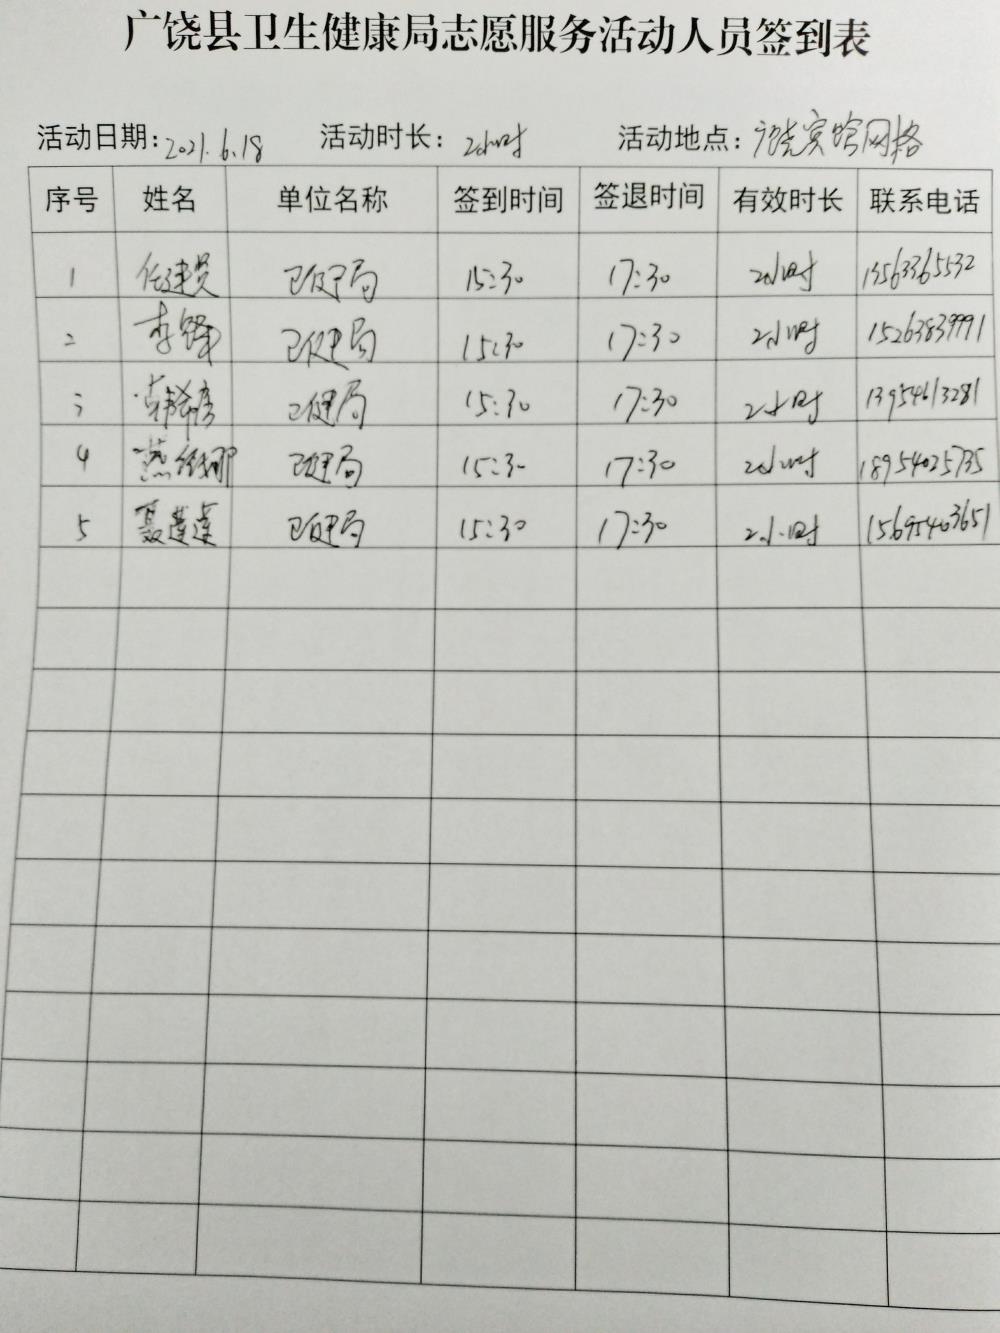 广饶县卫生健康局志愿服务活动人员签到表
活动日期：2021.6.18 活动时长：2小时 活动地点：广饶宾馆网格
序号 姓名 单位名称 签到时间 签退时间 有效时长 联系电话
1 任建员 卫健局 15:30 17:30 2小时 13563365532
2 李锋 卫健局 15:30 17:30 2小时 15263839991
3 韩希彦 卫健局 15:30 17:30 2小时 13954613281
4 燕娜 卫健局 15:30 17:30 2小时 18954025735
5 聂莲莲 卫健局 15:30 17:30 2小时 15695403651